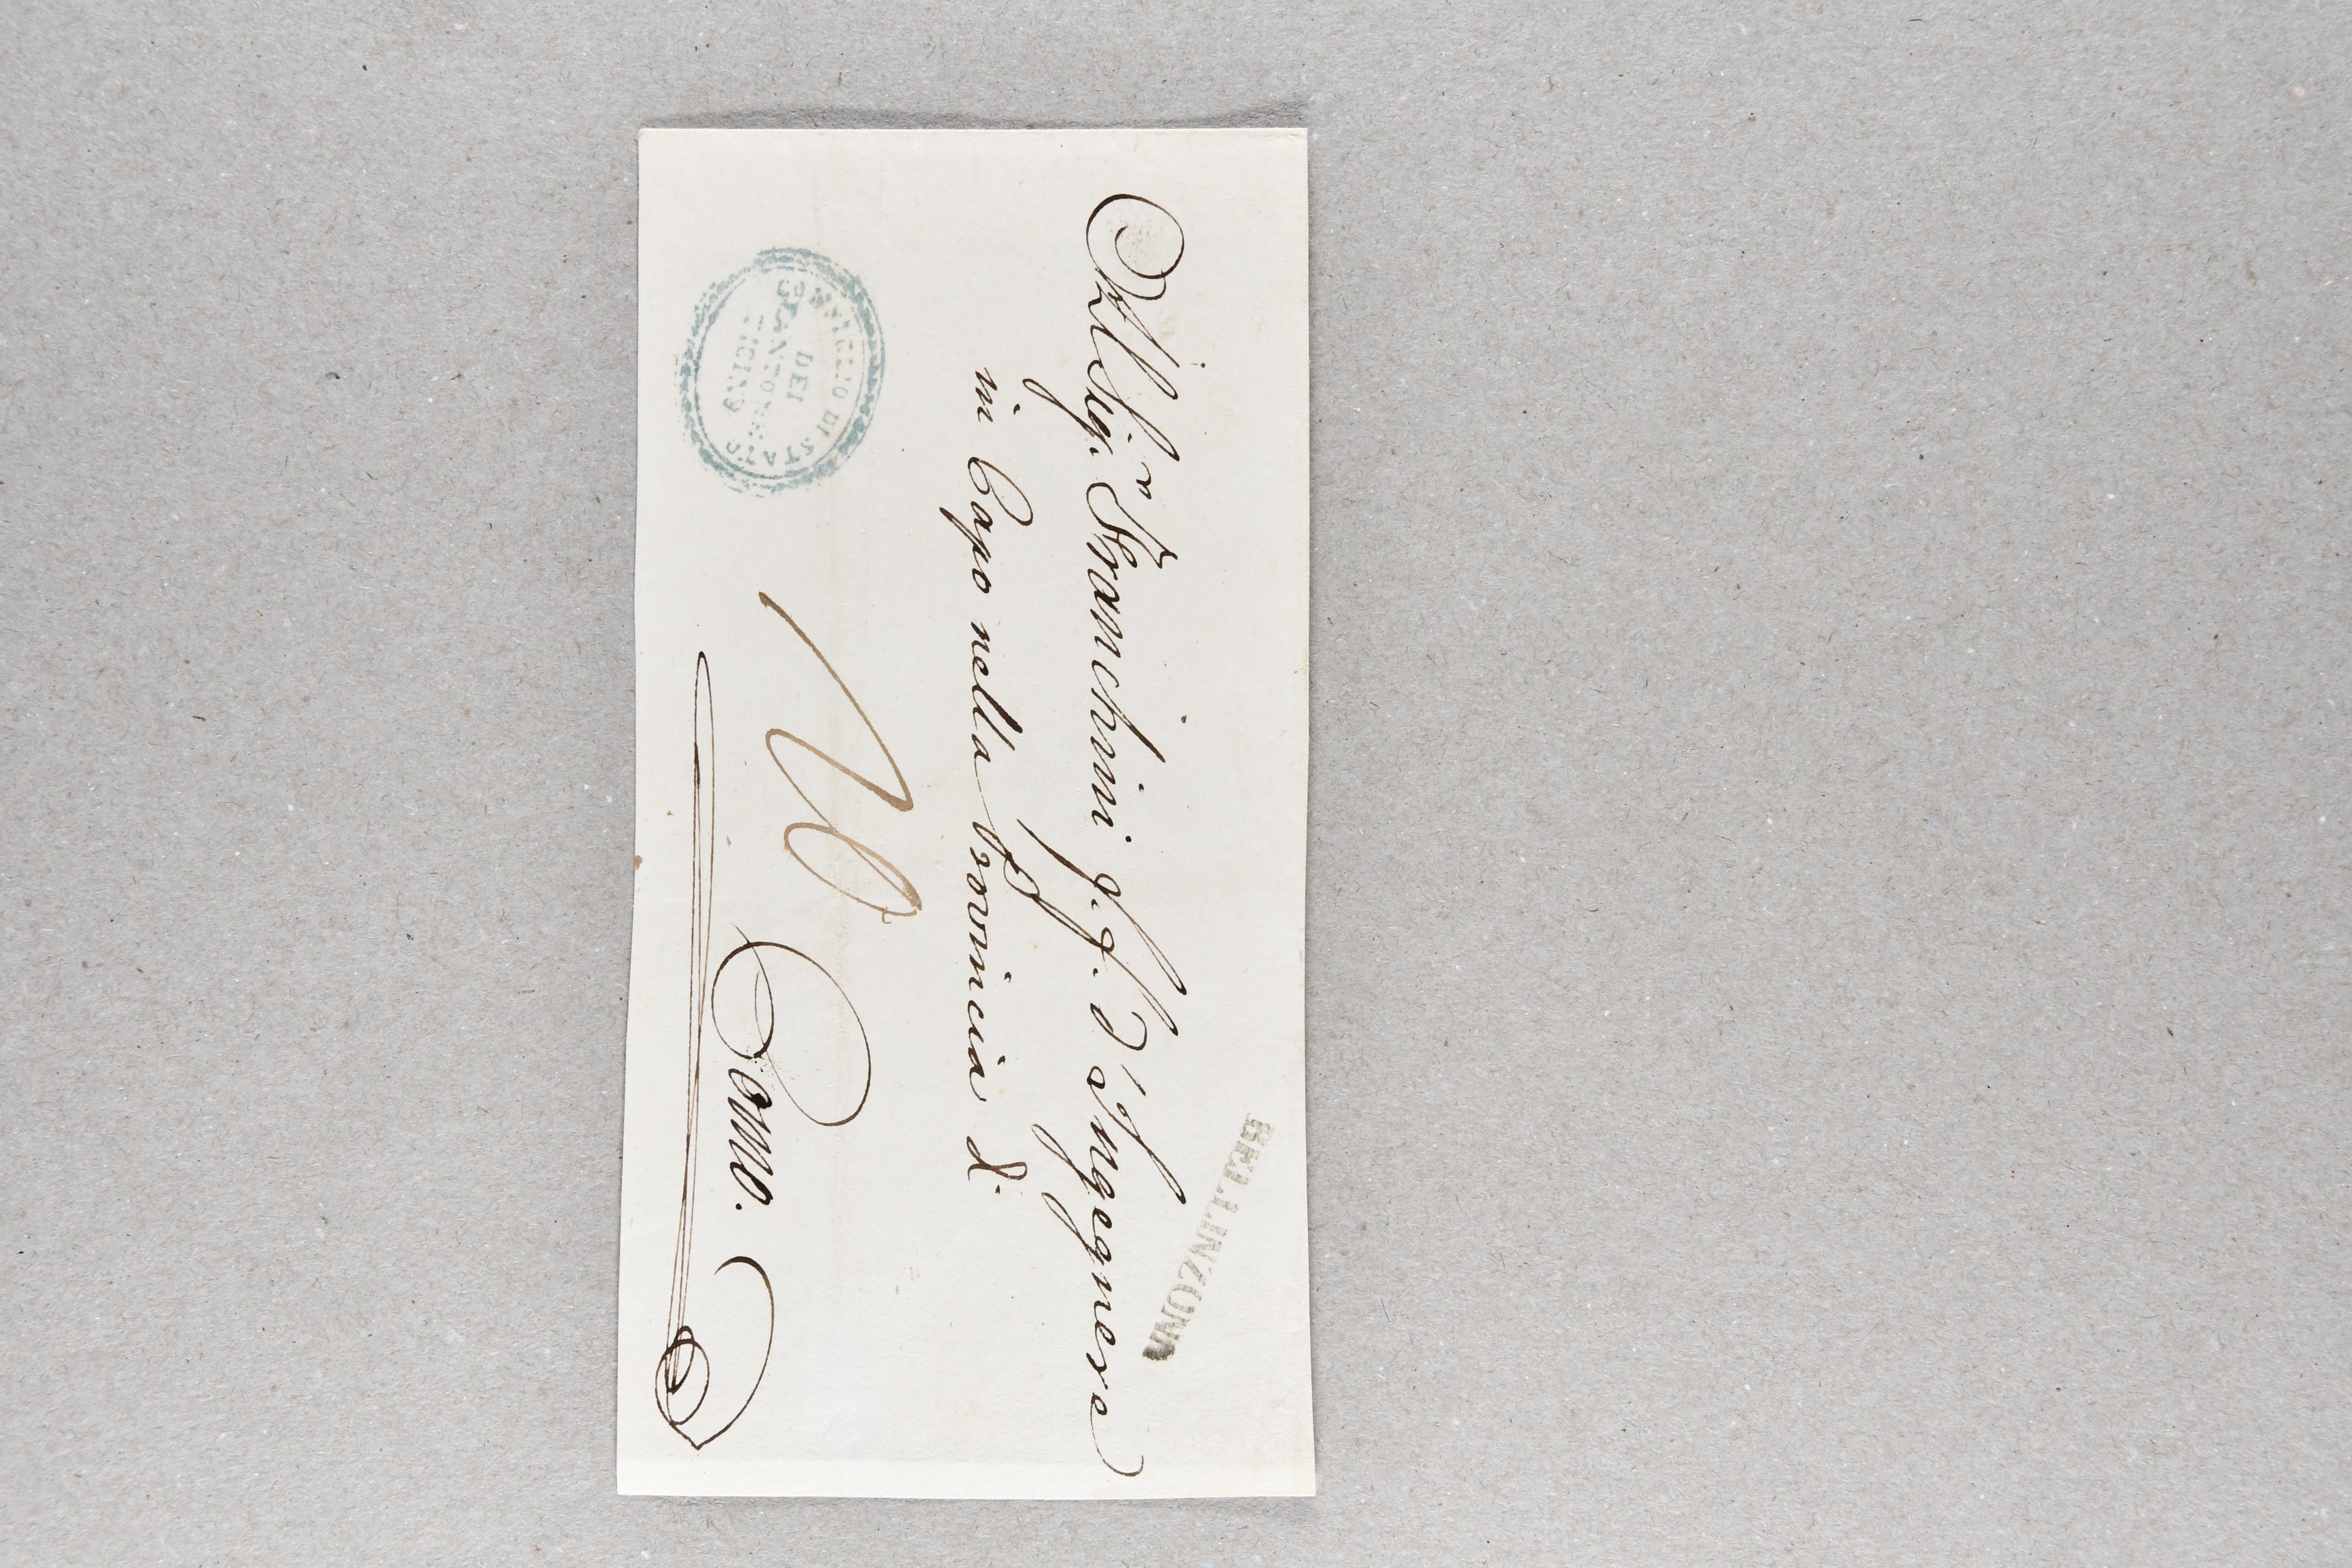 BELLINZONA
All Sig.r Franchini f.f. d'Ingegnere
in Capo nella Provincia di
Como.
CONSIGLIO DI STATO
DEL
CANTONE
TICINO